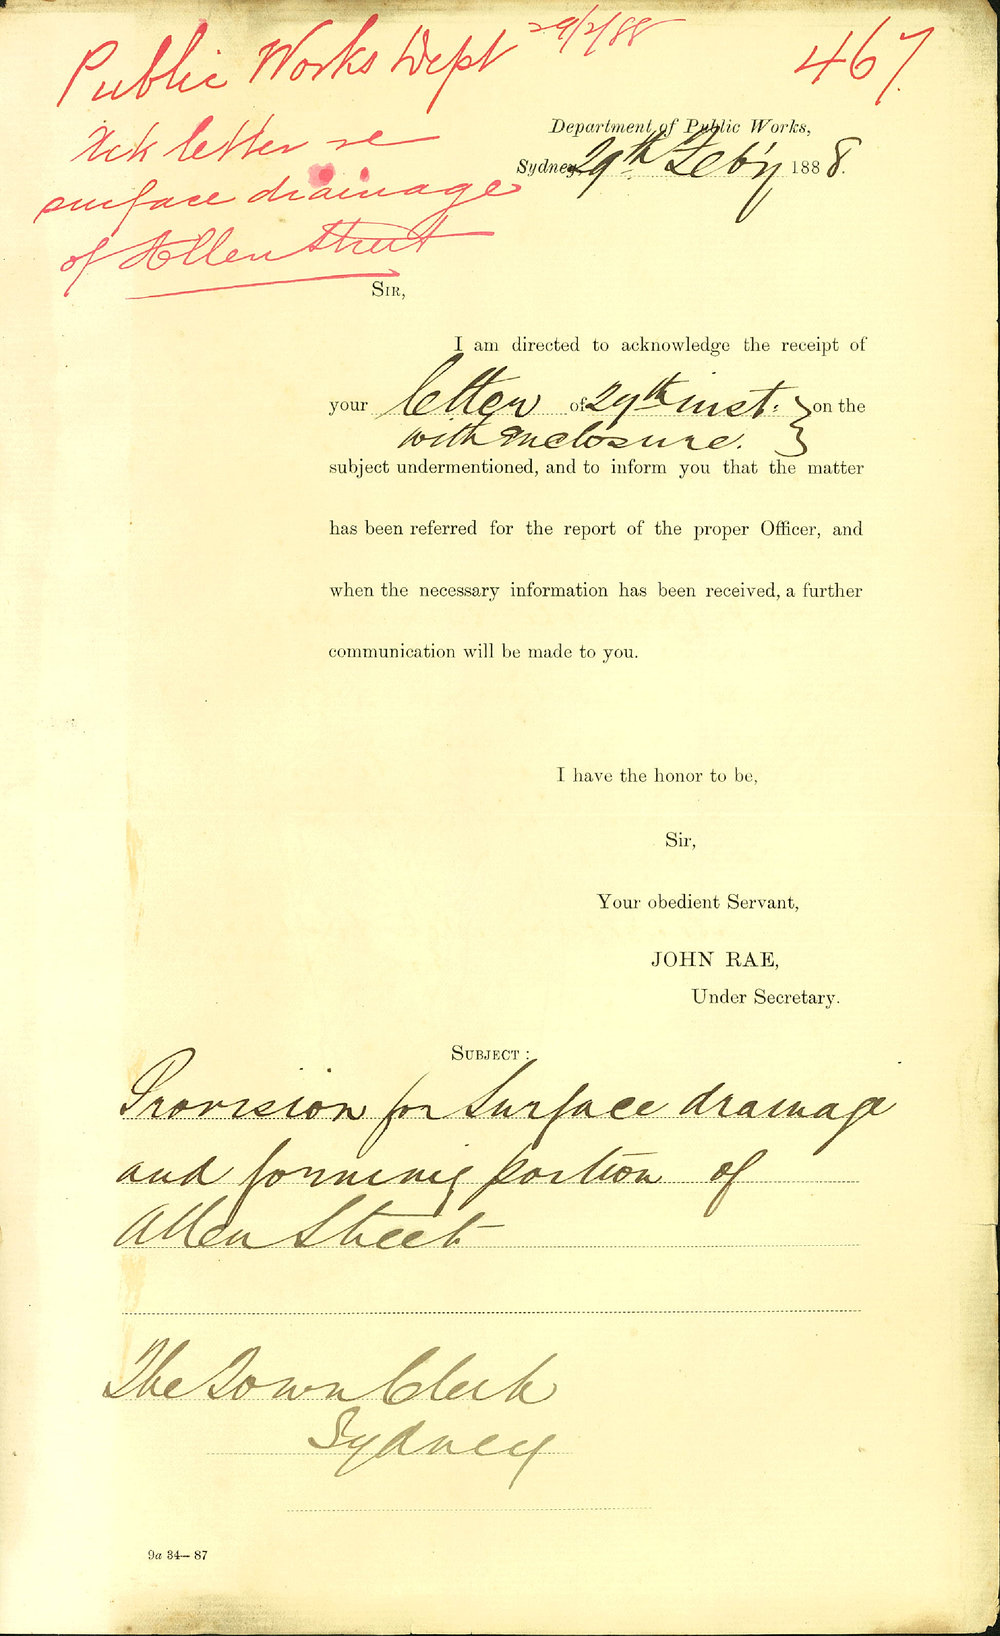 Public Works Dept 29/2/88
467.
Ack letter re
surface drainage
of Allen Street
Department of Public Works,
Sydney 29th Feb'y 1888.
SIR,
I am directed to acknowledge the receipt of
your letter of 29th inst: on the
with enclosure.
subject undermentioned, and to inform you that the matter
has been referred for the report of the proper Officer, and
when the necessary information has been received, a further
communication will be made to you.
I have the honor to be,
Sir,
Your obedient Servant,
JOHN RAE,
Under Secretary.
SUBJECT :
Provision for Surface drainage
and forming portion of
Allen Street
The Town Clerk
Sydney
9a 34—87